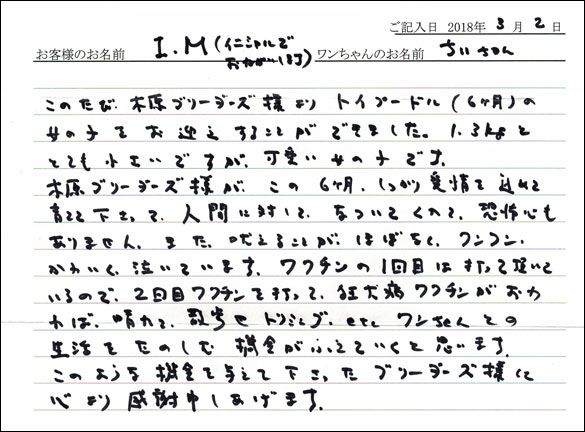 ご記入日 2018年 3月 2日
お客様のお名前 I.M (イニシャルで おねがいします) ワンちゃんのお名前 ちいちゃん
このたび 木原ブリーダーズ様より トイプードル(6ヶ月)の
女の子を お迎えすることができました。1.3kgと
とても小さいですが、可愛い女の子です。
木原ブリーダーズ様が、この6ヶ月、しっかり愛情を込めて
育てて下さって、人間に対して、なついてくれて、恐怖心も
ありません。また、吠えることが、ほぼなく、クンクン、
かわいく泣いています。ワクチンの1回目は打って頂いて
いるので、2回目ワクチンを打って、狂犬病ワクチンがおわ
れば、晴れて、散歩やトリミング、etc ワンちゃんとの
生活をたのしむ機会がふえていくと思います。
このような機会を与えて下さったブリーダーズ様に
心より感謝申しあげます。